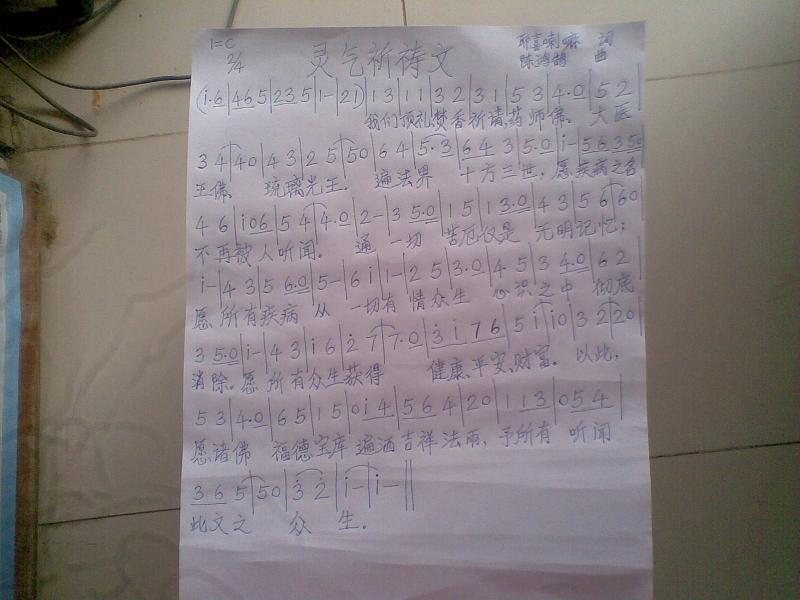 1=C 灵气祈祷文 耶喜喇嘛 词
2/4 陈鸿鹄 曲
(i·6|465|235|1-|21)|13|11|32|31|53|4·0|52
我们顶礼梦香祈请,药师佛。 大医
34|40|43|25|50|64|5·3|643|5·0|i-|56350
王佛、 琉璃光王. 遍法界 十方三世,愿疾病之名
46|i06|54|4·0|2-|35·0|15|13·0|43|56|60
不再被人听闻. 通一切 苦厄仅是 无明记忆;
i-|43|56·0|5-|6i|1-|25|3·0|45|34·0|62
愿所有疾病从 一切有情众生 心识之中 彻底
35·0|i-|43|i6|27|7·0|3i76|5i|i0|32|20
消除.愿所有众生获得 健康、平安、财富. 以此,
53|4·0|65|15|0i4|564|20|113|054|
愿诸佛 福德宝库遍洒吉祥法雨,予所有 听闻
365|50|32|i-|i-||
此文之 众生.